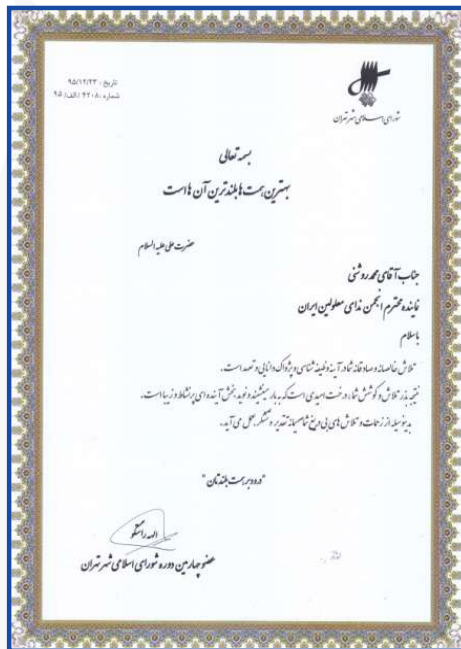 تاریخ : ۹۵/۱۲/۲۳
شماره : ۴۲۰۸ / الف / ۹۵
شورای اسلامی شهر تهران
بسمه تعالی
بهترین همت ها بلندترین آن هاست
حضرت علی علیه السلام
جناب آقای محمد روشنی
نماینده محترم انجمن ندای معلولین ایران
با سلام
تلاش خالصانه و صادقانه شما در آینه وظیفه شناسی و پژواک دانایی و تعهد است.
نتیجه بذر تلاش و کوشش شما، درخت امیدی است که به بار مینشیند و نوید بخش آینده ای پرنشاط و زیباست.
بدینوسیله از زحمات و تلاش های بی دریغ شما صمیمانه تقدیر و تشکر بعمل می آید.
"درود بر همت بلندتان"
الهه راستگو
عضو چهارمین دوره شورای اسلامی شهر تهران